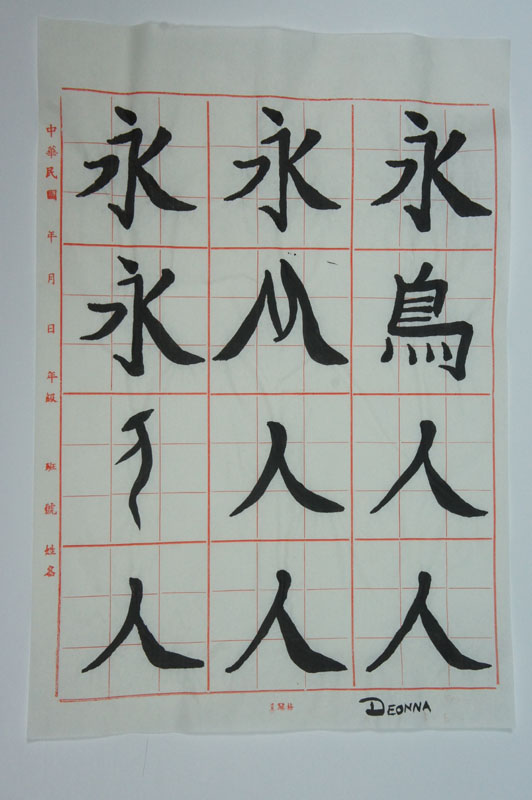 中華民國 年 月 日 年級 班 號 姓名
永 永 永
永 鳥
人 人
人 人 人
DEONNA